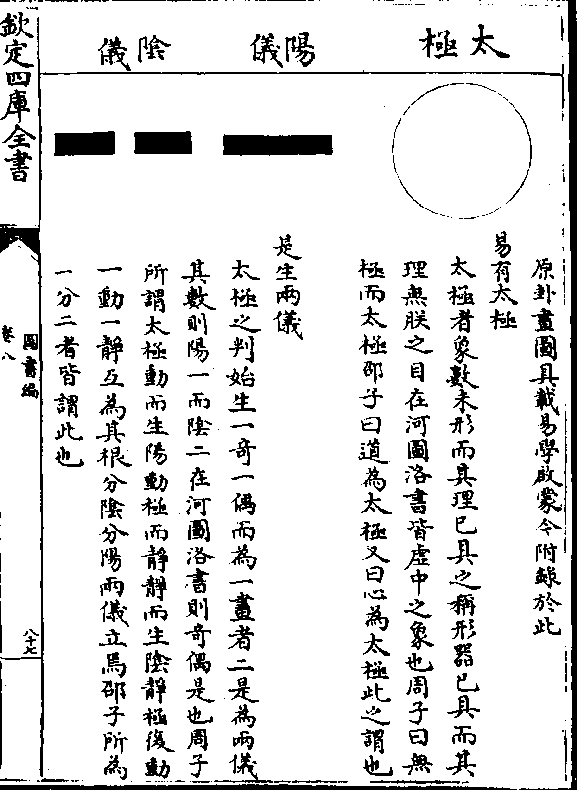 太極
陽儀
陰儀
原卦畫圖具載易學啟蒙今附錄於此
易有太極
太極者象數未形而其理已具之稱形器已具而其
理無朕之目在河圖洛書皆虛中之象也周子曰無
極而太極邵子曰道為太極又曰心為太極此之謂也
是生兩儀
太極之判始生一奇一偶而為一畫者二是為兩儀
其數則陽一而陰二在河圖洛書則奇偶是也周子
所謂太極動而生陽動極而靜靜而生陰靜極復動
一動一靜互為其根分陰分陽兩儀立焉邵子所為
一分二者皆謂此也
欽定四庫全書
圖書編
卷八
八十七